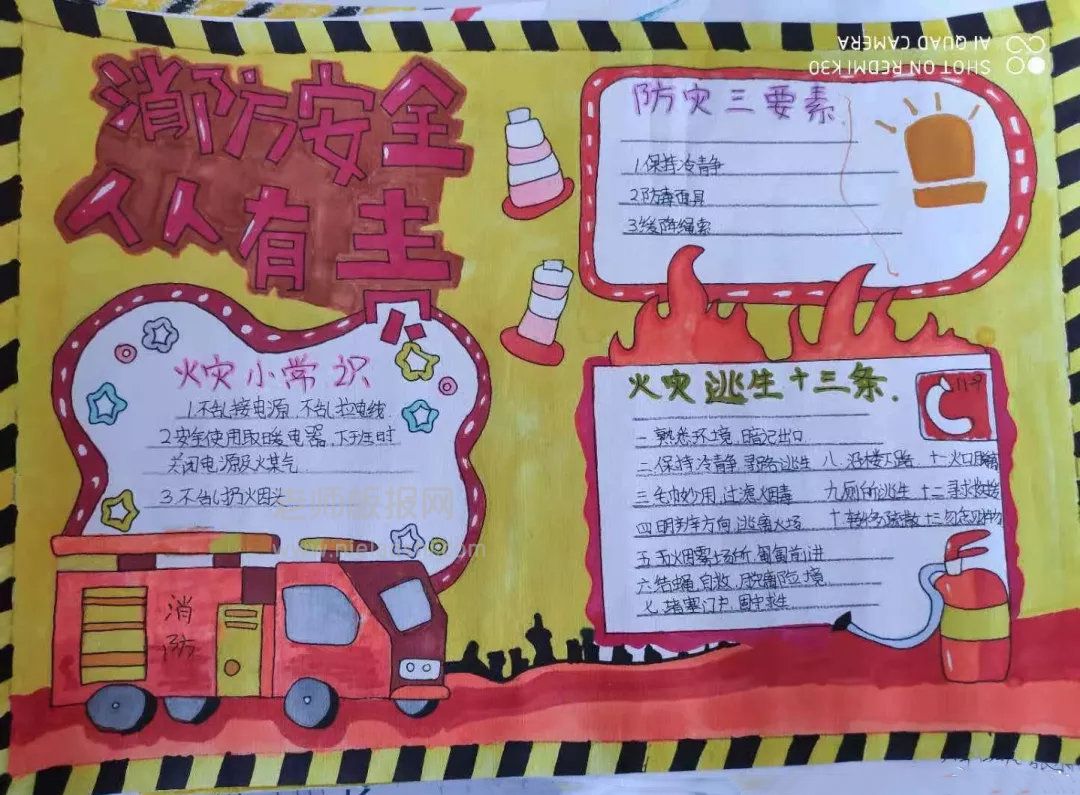 消防安全
人人有责
防灾三要素
1.保持冷静
2.防毒面具
3.缓降绳索
火灾小常识
1.不乱接电源,不乱拉电线
2.安全使用取暖电器,不生时
关闭电源及火煤气
3.不乱扔火因头
火灾逃生十三条.
119
一.熟悉环境,暗记出口
二.保持冷静,寻路逃生 八.沿楼下路
三.毛巾妙用,过滤烟毒 九厕所逃生 十二寻求救援
四.明辨方向,逃离火场
五.无烟雾场所,匍匐前进
六.结绳自救,脱离险境
七.堵塞门户,固守求生
消
防
老师板报网
SHOT ON REDMI K30
AI QUAD CAMERA